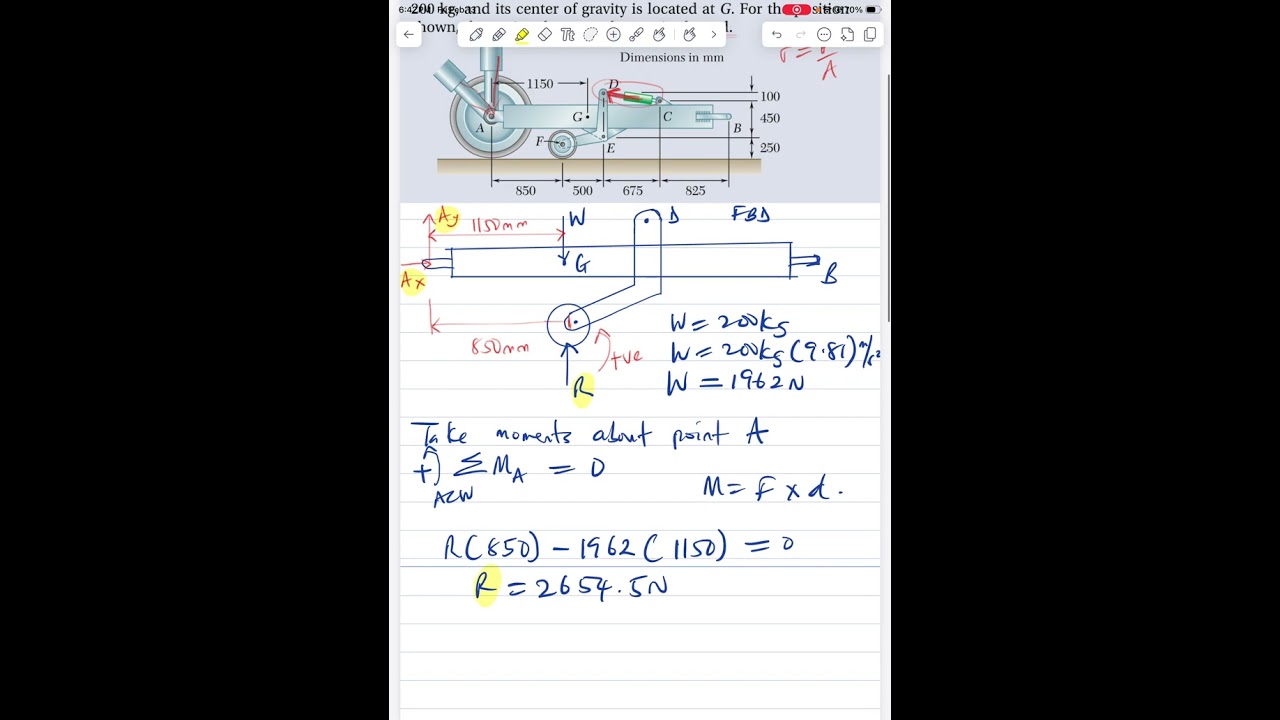 200 kg, and its center of gravity is located at G. For the position
shown,
Dimensions in mm
A
1150
D
G
C
B
F
E
100
450
250
850
500
675
825
A
Ay
1150mm
W
D
FBD
Ax
G
B
850mm
+ve
R
W = 200kg
W = 200kg (9.81) m/s²
W = 1962N
Take moments about point A
+) ΣMA = 0
ACW
M = F x d.
R(850) - 1962 (1150) = 0
R = 2654.5N